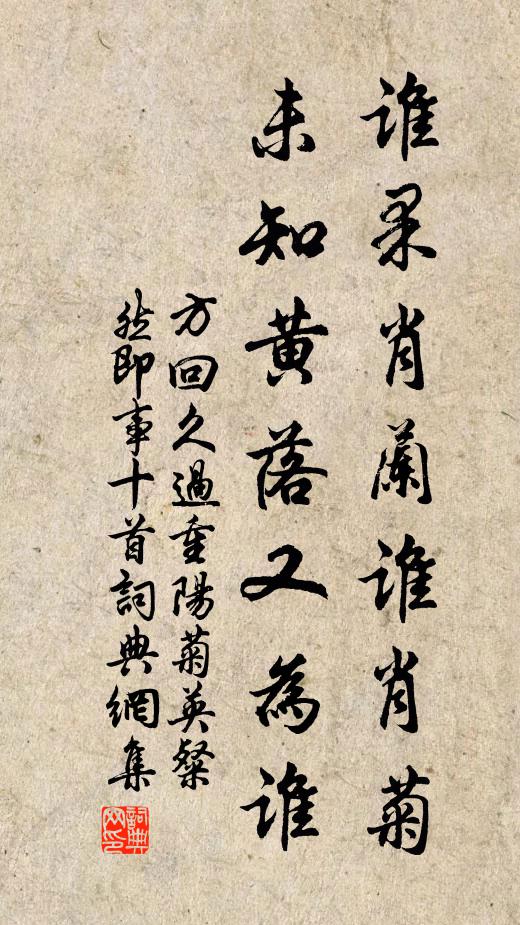 誰果肖蘭誰肖菊
未知黄落又為誰
方回久過重陽菊英粲
然即事十首詞典網集
詞典網印